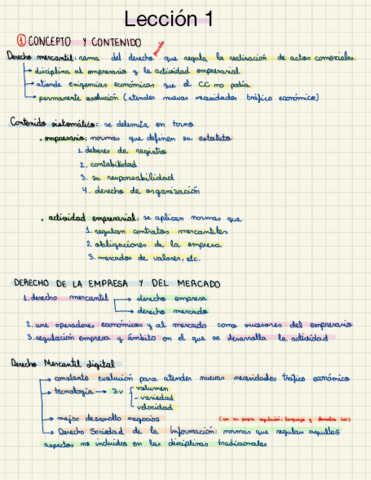 Lección 1
1 CONCEPTO Y CONTENIDO
Derecho mercantil: rama del derecho privado que regula la realización de actos comerciales
→ disciplina al empresario y la actividad empresarial
→ atiende exigencias económicas que el CC no podía
→ permanente evolución (atender nuevas necesidades tráfico económico)
Contenido sistemático: se delimita en torno
• empresario: normas que definen su estatuto
1. deberes de registro
2. contabilidad
3. su responsabilidad
4. derecho de organización
• actividad empresarial: se aplican normas que
1. regulan contratos mercantiles
2. obligaciones de la empresa
3. mercados de valores, etc.
DERECHO DE LA EMPRESA Y DEL MERCADO
1. derecho mercantil → derecho empresa
→ derecho mercado
2. une operadores económicos y al mercado como sucesores del empresario
3. regulación empresa y ámbito en el que se desarrolla la actividad
Derecho Mercantil digital
→ constante evolución para atender nuevas necesidades tráfico económico
→ tecnología → 3v - volumen
- variedad
- velocidad
→ mejor desarrollo negocios
→ Derecho Sociedad de la Información: normas que regulan aquellos
aspectos no incluidos en las disciplinas tradicionales